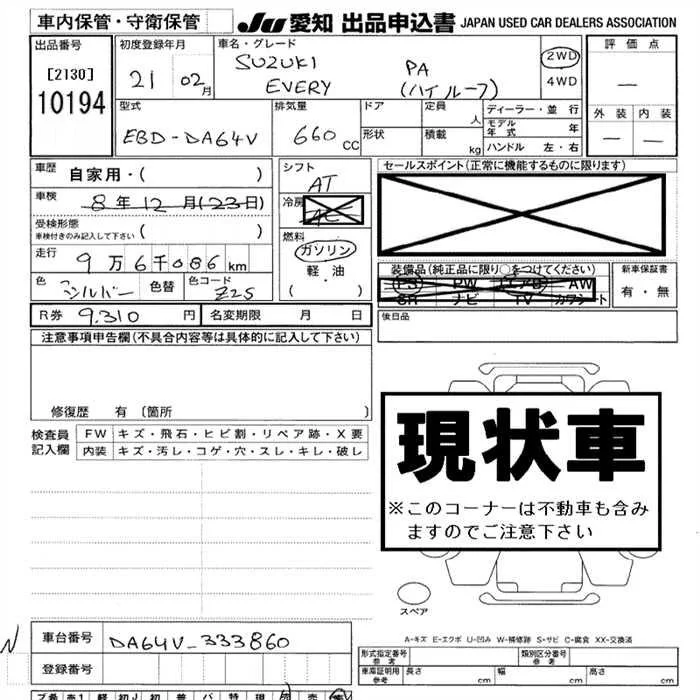 車内保管・守衛保管 JU 愛知 出品申込書 JAPAN USED CAR DEALERS ASSOCIATION
出品番号 初度登録年月 車名・グレード 評価点
[2130] 21 02月 SUZUKI PA 2WD
10194 EVERY (ハイルーフ) 4WD —
型式 排気量 ドア 定員 人 ディーラー・並行 外装 内装
EBD-DA64V 660 CC 形状 積載 kg モデル年式 年 — —
ハンドル 左・右
車歴 自家用・( ) シフト AT セールスポイント(正常に機能するものに限ります)
車検 8年12月(23日) 冷房 AC
受検形態
車検付きのみ記入して下さい ( ) 燃料 ガソリン
走行 9万6千086km 軽油 装備品(純正品に限り○をつけてください) 新車保証書
色 シルバー 色替 色コード Z2S ( ・ ) PS PW エアB AW 有・無
SR ナビ TV カワシート
R券 9.310円 名変期限 月 日 後日品
注意事項申告欄(不具合内容等は具体的に記入して下さい)
修復歴 有 〔箇所 〕
検査員 FW キズ・飛石・ヒビ割・リペア跡・X要
記入欄 内装 キズ・汚レ・コゲ・穴・スレ・キレ・破レ
現状車
※このコーナーは不動車も含み
ますのでご注意下さい
スペア
A-キズ E-エクボ U-凹み W-補修跡 S-サビ C-腐食 XX-交換済
N 車台番号 DA64V-333860
登録番号 形式指定番号 参考 類別区分番号 参考
車庫証明用 参考 長さ cm 幅 cm 高さ cm